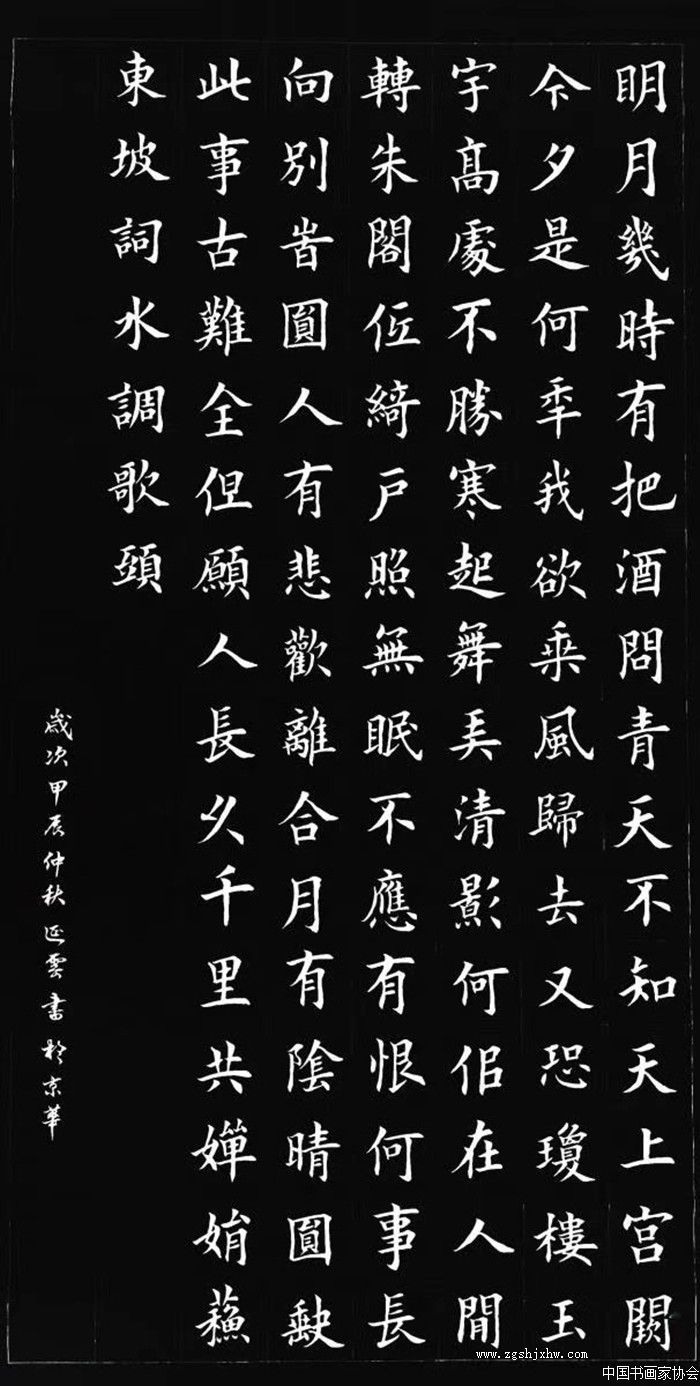 眀月幾時有把酒問青天不知天上宫闕
今夕是何秊我欲乘風歸去又恐瓊樓玉
宇髙處不勝寒起舞弄清影何佀在人間
轉朱閣低綺户照無眠不應有恨何事長
向别旹圓人有悲歡離合月有陰晴圓缺
此事古難全但願人長久千里共嬋娟蘇
東坡詞水調歌頭
歲次甲辰仲秋延雲書於京華
www.zgshjxhw.com
中国书画家协会